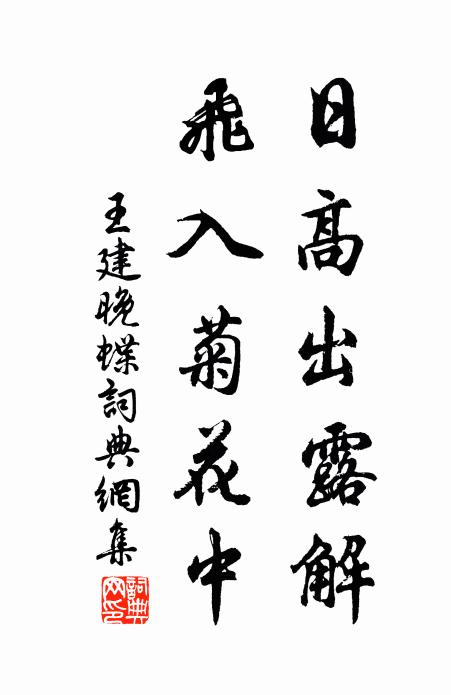 日高出露解
飛入菊花中
王建晚蝶詞典網集
詞典网印